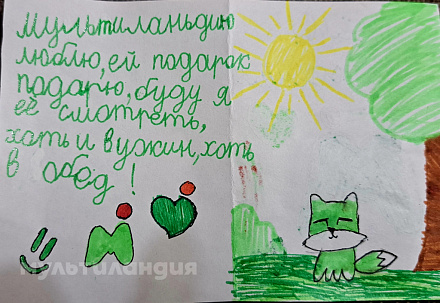 Мультиландию
люблю, ей подарок
подарю, буду я
её смотреть,
хоть и в ужин, хоть
в обед!
мультиландия